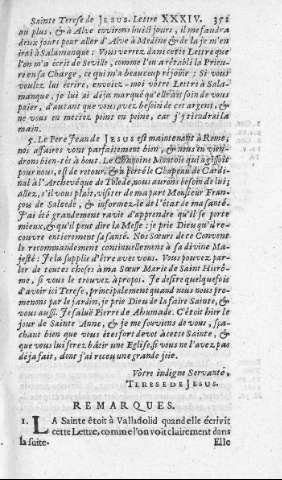 Sainte Terese de JESUS. Lettre XXXIV. 371
au plus, & à Alve environ huict jours, il me faudra
deux jours pour aller d'Alve à Medine & de là je m'en
irai à Salamanque: Vous verrez dans cette Lettre que
l'on m'a écrit de Seville, comme l'on a rétabli la Prieu-
ren sa Charge, ce qui m'a beaucoup réjoüie: Si vous
voulez lui écrire, envoiez-moi vôtre Lettre à Sala-
manque, je lui ai déja marqué qu'elle ait soin de vous
paier, d'autant que vous avez besoin de cet argent, &
ne vous en mettez point en peine, car j'y tiendrai la
main.
5. Le Pere Jean de JESUS est maintenant à Rome,
nos affaires vont parfaitement bien, & nous en vien-
drons bien-tôt à bout. Le Chanoine Montoie qui agissoit
pour nous, est de retour, & a porté le Chapeau de Cardi-
nal à l'Archevêque de Tolede, nous aurons besoin de lui;
allez, s'il vous plaît, visiter de ma part Monsieur Fran-
çois de Salcede, & informez-le de l'état de ma santé.
J'ai été grandement ravie d'apprendre qu'il se porte
mieux, & qu'il peut dire la Messe: je prie Dieu qu'il re-
couvre entierement sa santé. Nos Sœurs de ce Convent
le recommandent continuellement à sa divine Ma-
jesté: Je la supplie d'être avec vous. Vous pouvez par-
ler de toutes choses à ma Sœur Marie de Saint Hierô-
me, si vous le trouvez à propos. Je desire quelquefois
d'avoir ici Terese, principalement quand nous nous pro-
menons par le jardin, je prie Dieu de la faire Sainte, &
vous aussi. Je saluë Pierre de Ahumade. C'étoit hier le
jour de Sainte Anne, & je me souviens de vous, sça-
chant bien que vous êtes fort devot à cette Sainte, &
que vous lui ferez bâtir une Eglise, si vous ne l'avez pas
déja fait, dont j'ai receu une grande joie.
Vôtre indigne Servante,
TERESE DE JESUS.
REMARQUES.
1. LA Sainte êtoit à Valladolid quand elle écrivit
cette Lettre, comme l'on voit clairement dans
la suite. Elle